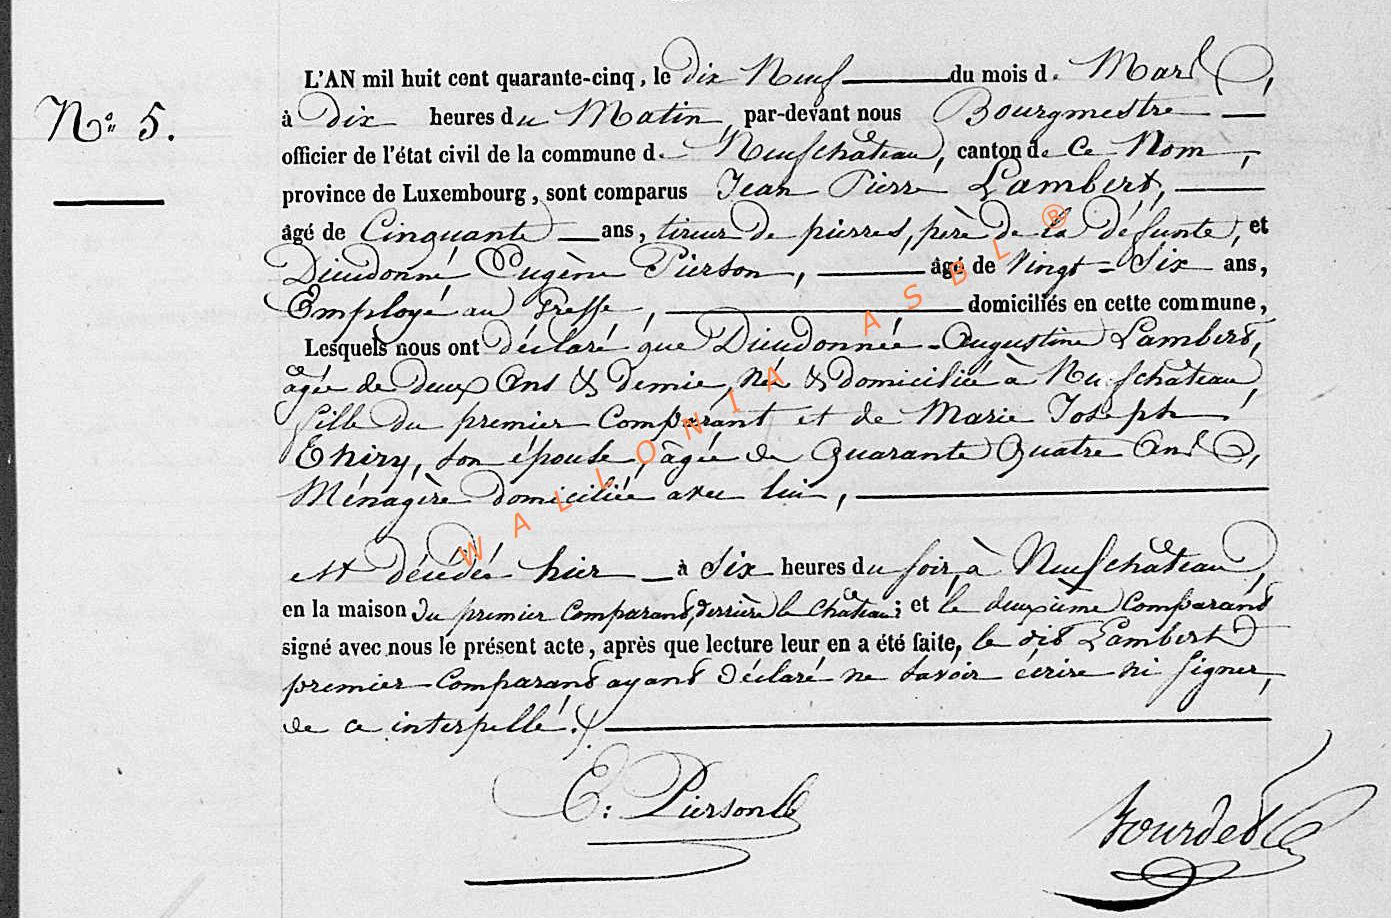 N° 5.
L'AN mil huit cent quarante-cinq, le dix Neuf du mois d. Mars,
à Dix heures du Matin, par-devant nous Bourgmestre
officier de l'état civil de la commune d. Neufchâteau, canton de Ce Nom,
province de Luxembourg, sont comparus Jean Pierre Lambert,
âgé de Cinquante ans, tireur de pierres, père de la défunte, et
Dieudonné Eugène Pierson, âgé de Vingt-Six ans,
Employé au Greffe, domiciliés en cette commune,
Lesquels nous ont déclaré que Dieudonnée-Augustine Lambert,
âgée de deux Ans & demie, née & domiciliée à Neufchâteau,
fille du premier Comparant et de Marie Joseph
Thiry, son épouse, âgée de Quarante Quatre Ans,
Ménagère domiciliée avec lui,
est décédée hier à Six heures du soir, à Neufchâteau,
en la maison du premier Comparant, derrière le Château; et le deuxième Comparant
signé avec nous le présent acte, après que lecture leur en a été faite, le dit Lambert
premier Comparant ayant déclaré ne savoir écrire ni signer,
de ce interpellé./.
E: Pierson
WALLONIA ASBL ®